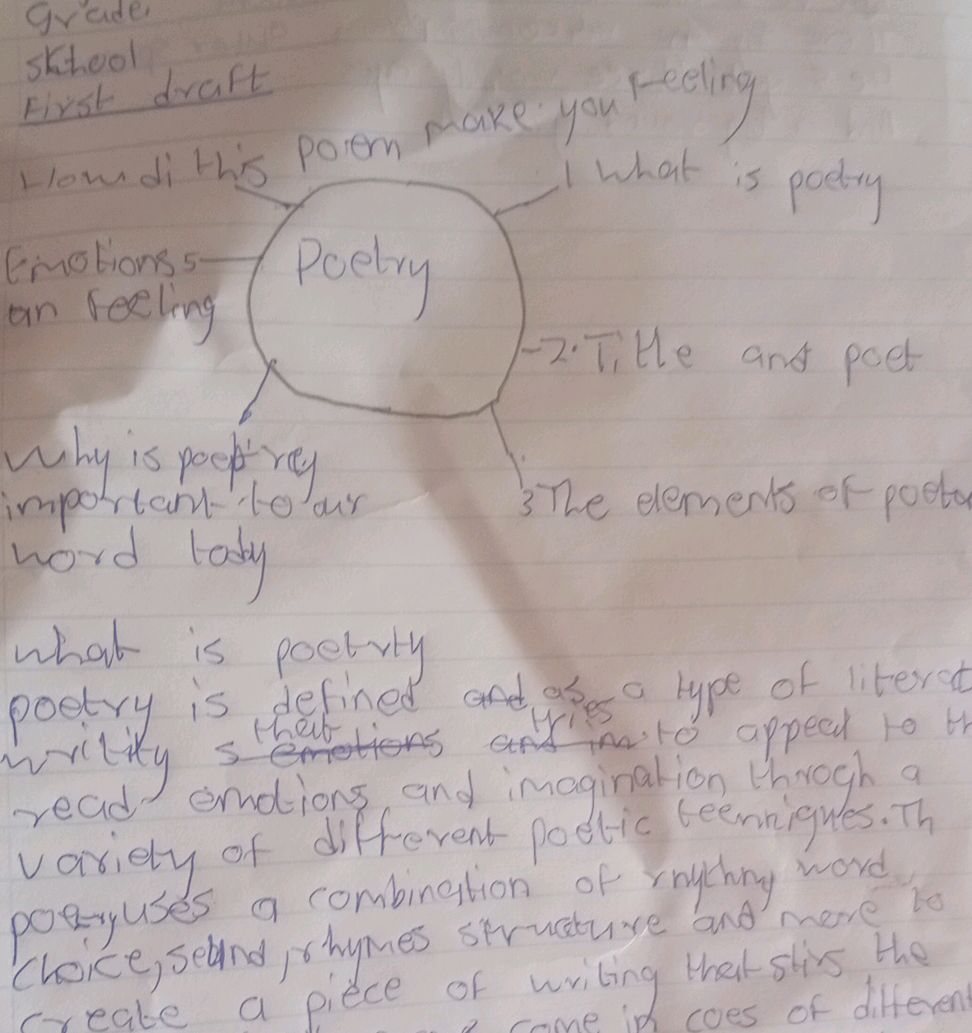 Grade
skhool
First draft
How di this poem make you Feeling
1 What is poetry
Poetry
Emotions 5
an feeling
2. Title and poet
Why is poetrey
important to our
word tody
3 The elements of
what is poetrty
poetry is defined and as a type of
that tries
emotions and to appeal to
read emotions, and imagination throgh a
variety of different poetic
uses a combination of word
choice, sound, rhymes structure and more to
create a piece of writing that stirs the
come in of different